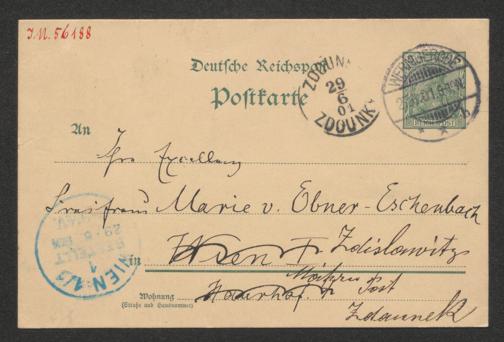 J.N. 56188
Deutsche Reichspost
Postkarte
ZDOUNKY
29
6
01
ZDOUNKY
WERNIGERODE
An
Ihre Excellenz
Freifrau Marie v. Ebner-Eschenbach
in Wien Zdislawitz
Mähren Post
Wohnung
(Straße und Hausnummer)
Zdaunek
WIEN 1/1
BESTELLT